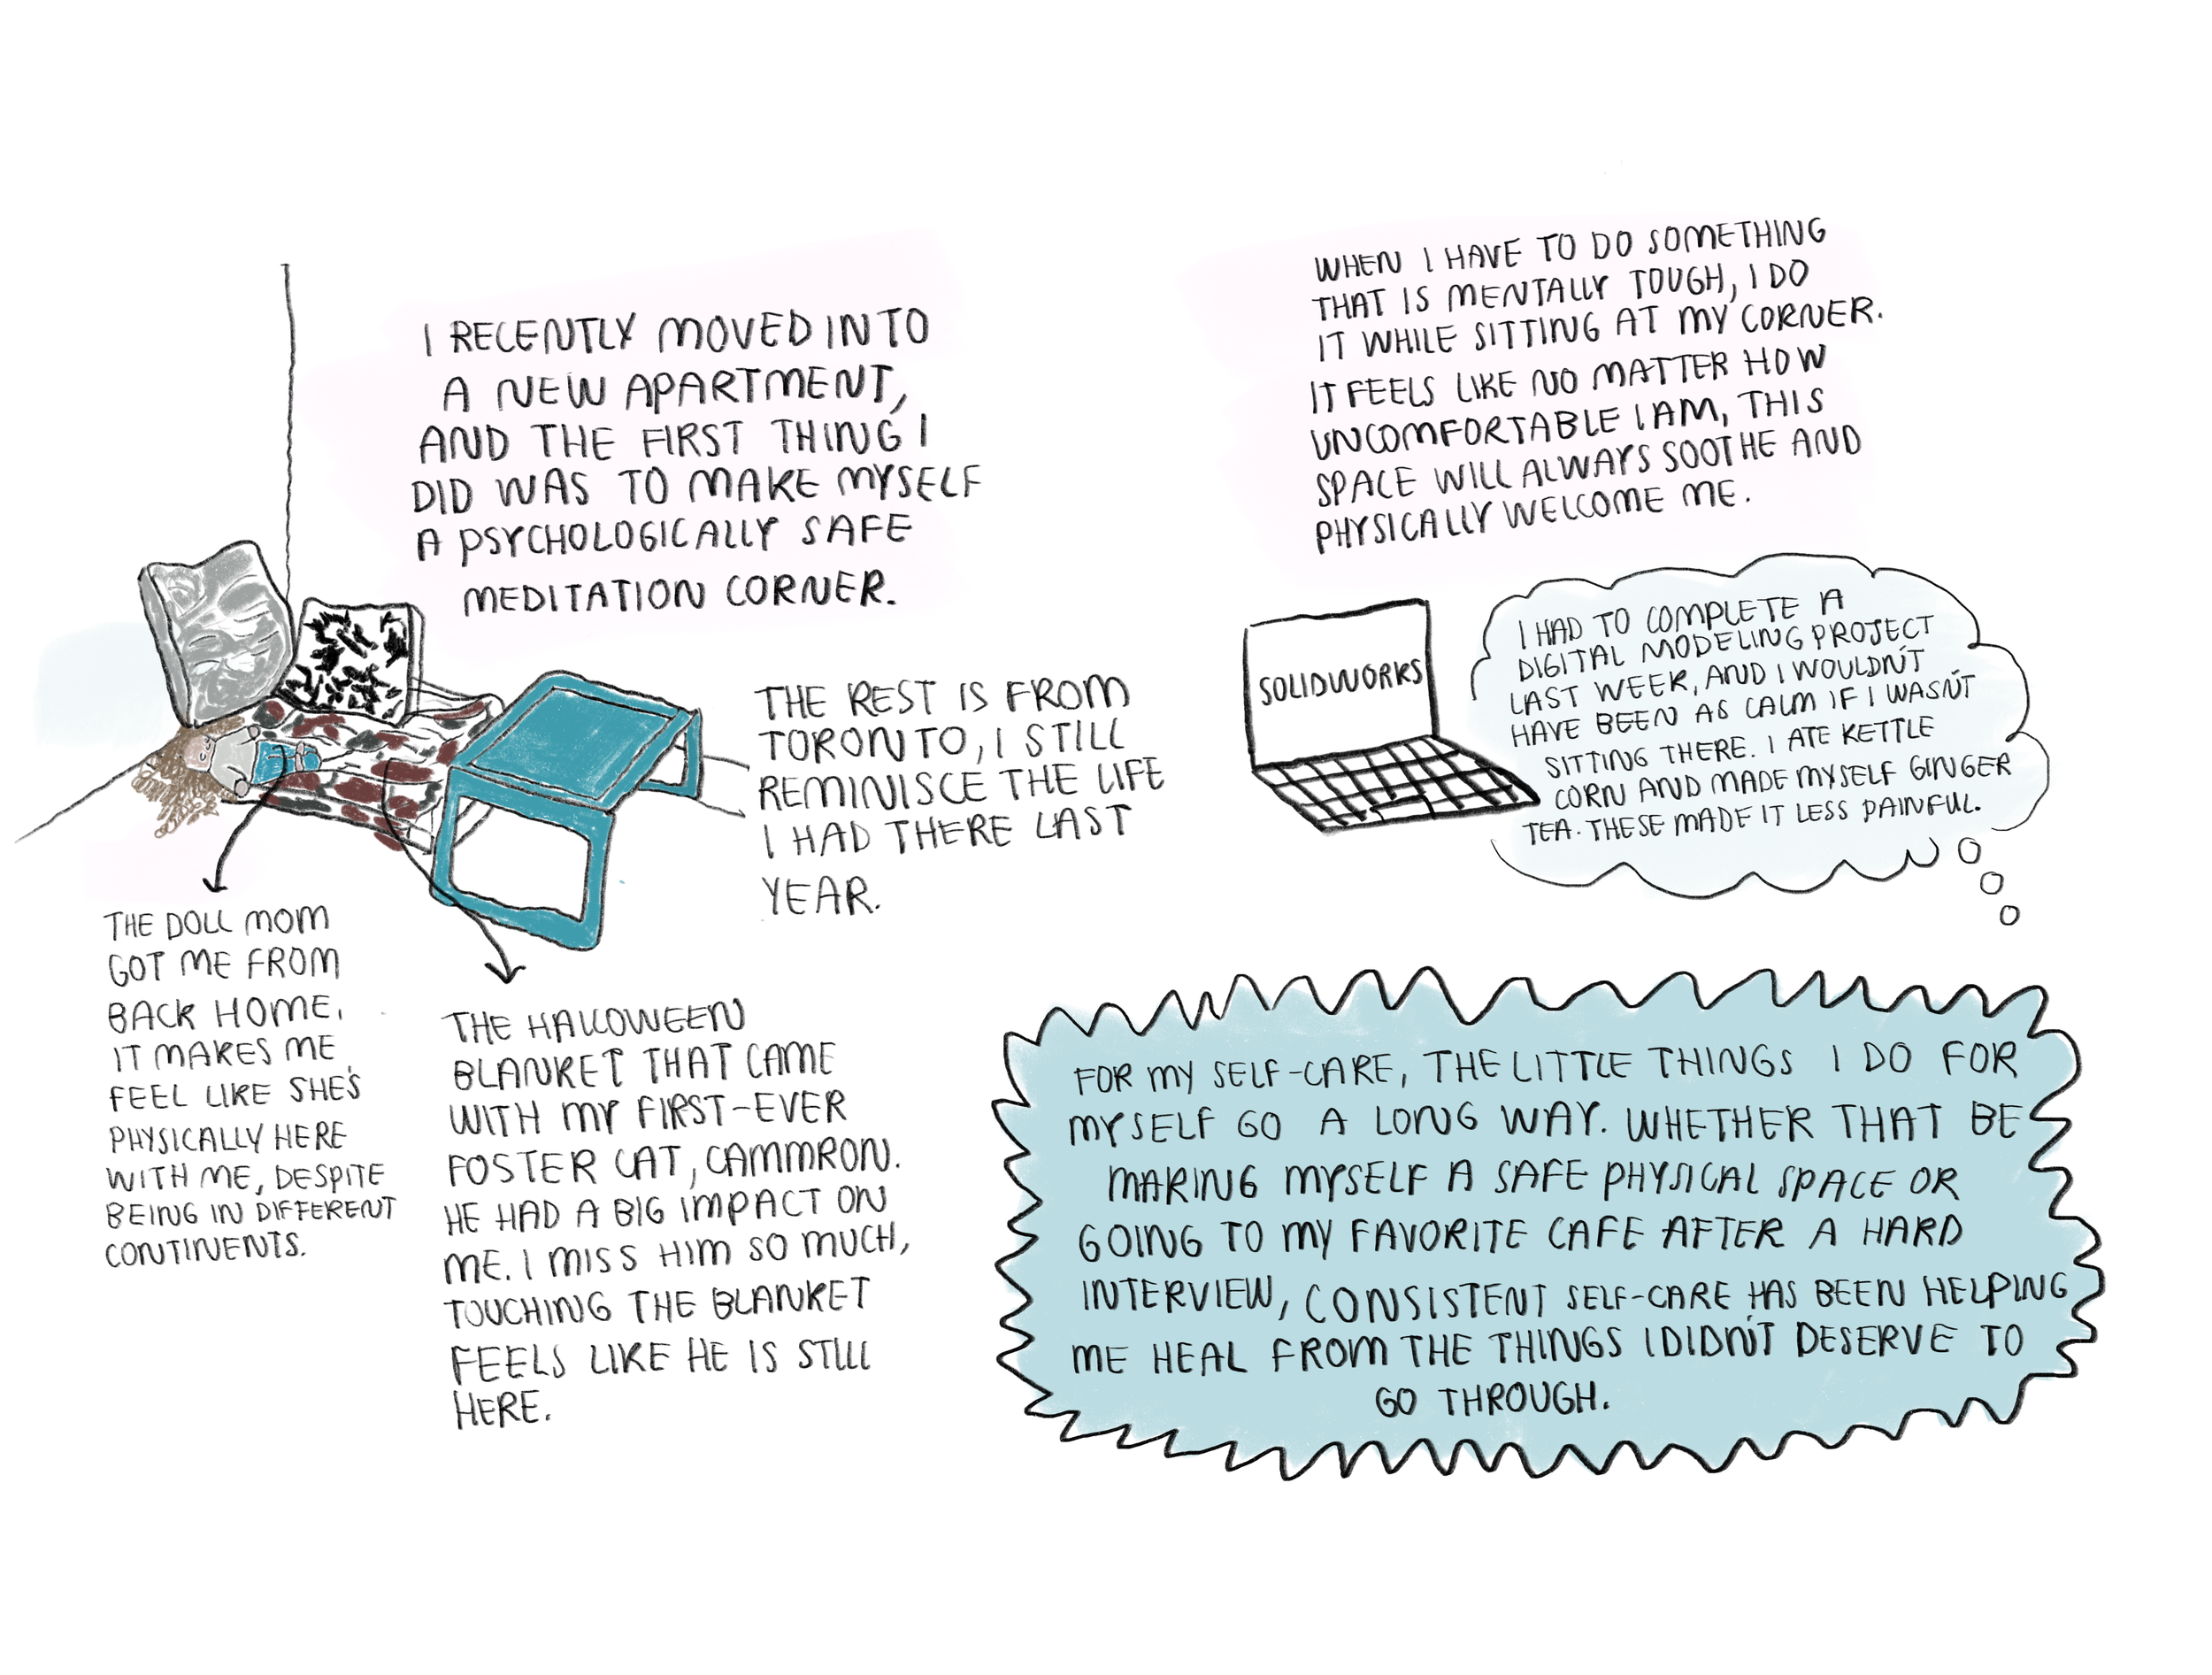 I RECENTLY MOVED INTO
A NEW APARTMENT,
AND THE FIRST THING I
DID WAS TO MAKE MYSELF
A PSYCHOLOGICALLY SAFE
MEDITATION CORNER.
THE REST IS FROM
TORONTO, I STILL
REMINISCE THE LIFE
I HAD THERE LAST
YEAR.
THE DOLL MOM
GOT ME FROM
BACK HOME.
IT MAKES ME
FEEL LIKE SHE'S
PHYSICALLY HERE
WITH ME, DESPITE
BEING IN DIFFERENT
CONTINENTS.
THE HALLOWEEN
BLANKET THAT CAME
WITH MY FIRST-EVER
FOSTER CAT, CAMMRON.
HE HAD A BIG IMPACT ON
ME. I MISS HIM SO MUCH,
TOUCHING THE BLANKET
FEELS LIKE HE IS STILL
HERE.
WHEN I HAVE TO DO SOMETHING
THAT IS MENTALLY TOUGH, I DO
IT WHILE SITTING AT MY CORNER.
IT FEELS LIKE NO MATTER HOW
UNCOMFORTABLE I AM, THIS
SPACE WILL ALWAYS SOOTHE AND
PHYSICALLY WELCOME ME.
SOLIDWORKS
I HAD TO COMPLETE A
DIGITAL MODELING PROJECT
LAST WEEK, AND I WOULDN'T
HAVE BEEN AS CALM IF I WASN'T
SITTING THERE. I ATE KETTLE
CORN AND MADE MYSELF GINGER
TEA. THESE MADE IT LESS PAINFUL.
FOR MY SELF-CARE, THE LITTLE THINGS I DO FOR
MYSELF GO A LONG WAY. WHETHER THAT BE
MAKING MYSELF A SAFE PHYSICAL SPACE OR
GOING TO MY FAVORITE CAFE AFTER A HARD
INTERVIEW, CONSISTENT SELF-CARE HAS BEEN HELPING
ME HEAL FROM THE THINGS I DIDN'T DESERVE TO
GO THROUGH.